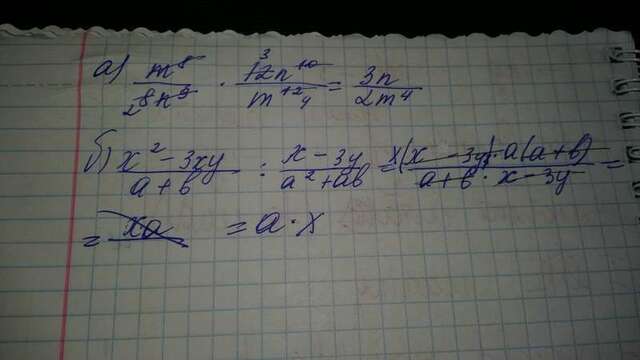 а) m⁸/8n⁹ · 12n¹⁰/m¹² = 3n/2m⁴
б) x² – 3xy/a + b : x – 3y/a² + ab = x(x – 3y) · a(a + b)/a + b · x – 3y =
= xa = a · x